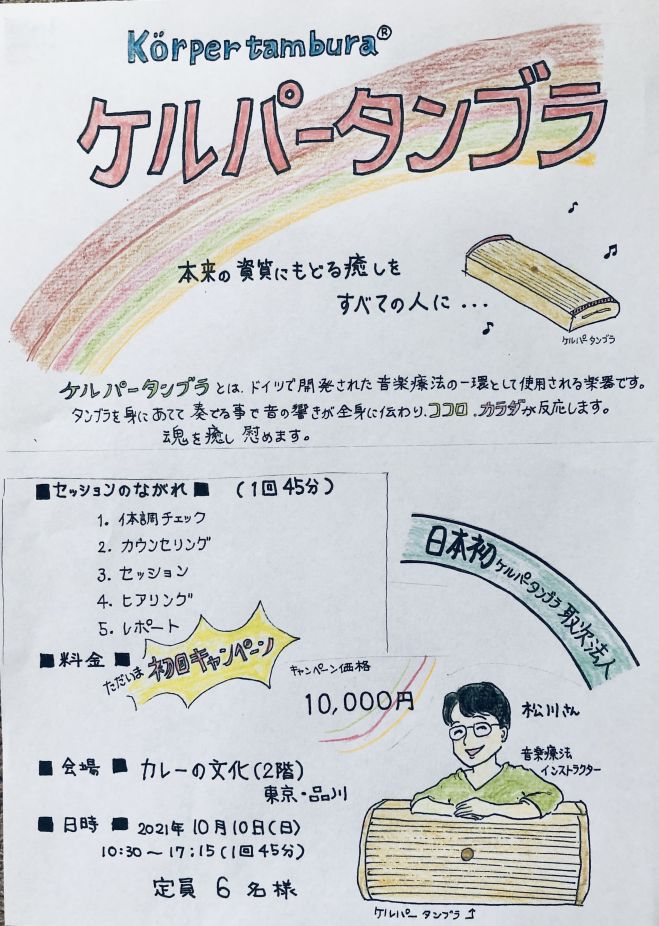 Körpertambura®
ケルパータンブラ
本来の資質にもどる癒しを
すべての人に...
ケルパータンブラ
ケルパータンブラとは、ドイツで開発された音楽療法の一環として使用される楽器です。
タンブラを身にあてて奏でる事で音の響きが全身に伝わり、ココロ、カラダが反応します。
魂を癒し慰めます。
■セッションのながれ■ (1回45分)
1. 体調チェック
2. カウンセリング
3. セッション
4. ヒアリング
5. レポート
日本初ケルパータンブラ取次法人
■料金■
ただいま初回キャンペーン
キャンペーン価格
10,000円
松川さん
音楽療法
インストラクター
■会場■ カレーの文化(2階)
東京・品川
■日時■ 2021年10月10日(日)
10:30〜17:15(1回45分)
定員 6名様
ケルパータンブラ↑